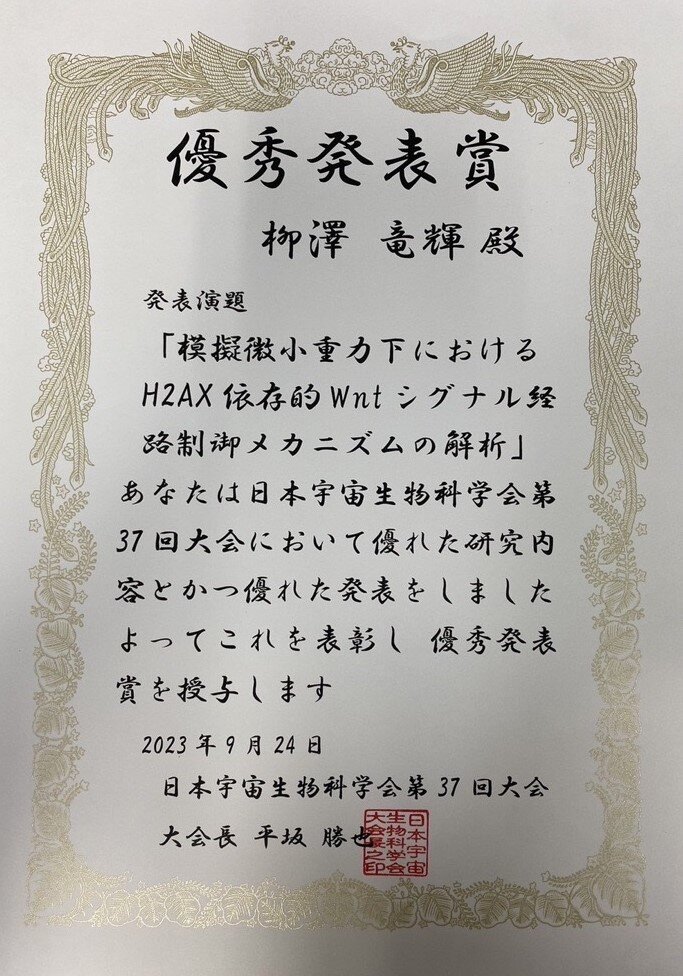 優秀発表賞
柳澤 竜輝 殿
発表演題
「模擬微小重力下における
H2AX 依存的 Wnt シグナル経
路制御メカニズムの解析」
あなたは日本宇宙生物科学会第
37 回大会において優れた研究内
容とかつ優れた発表をしました
よってこれを表彰し 優秀発表
賞を授与します
2023 年 9 月 24 日
日本宇宙生物科学会第 37 回大会
大会長 平坂 勝也
日本宇宙
生物科学会
大会長之印